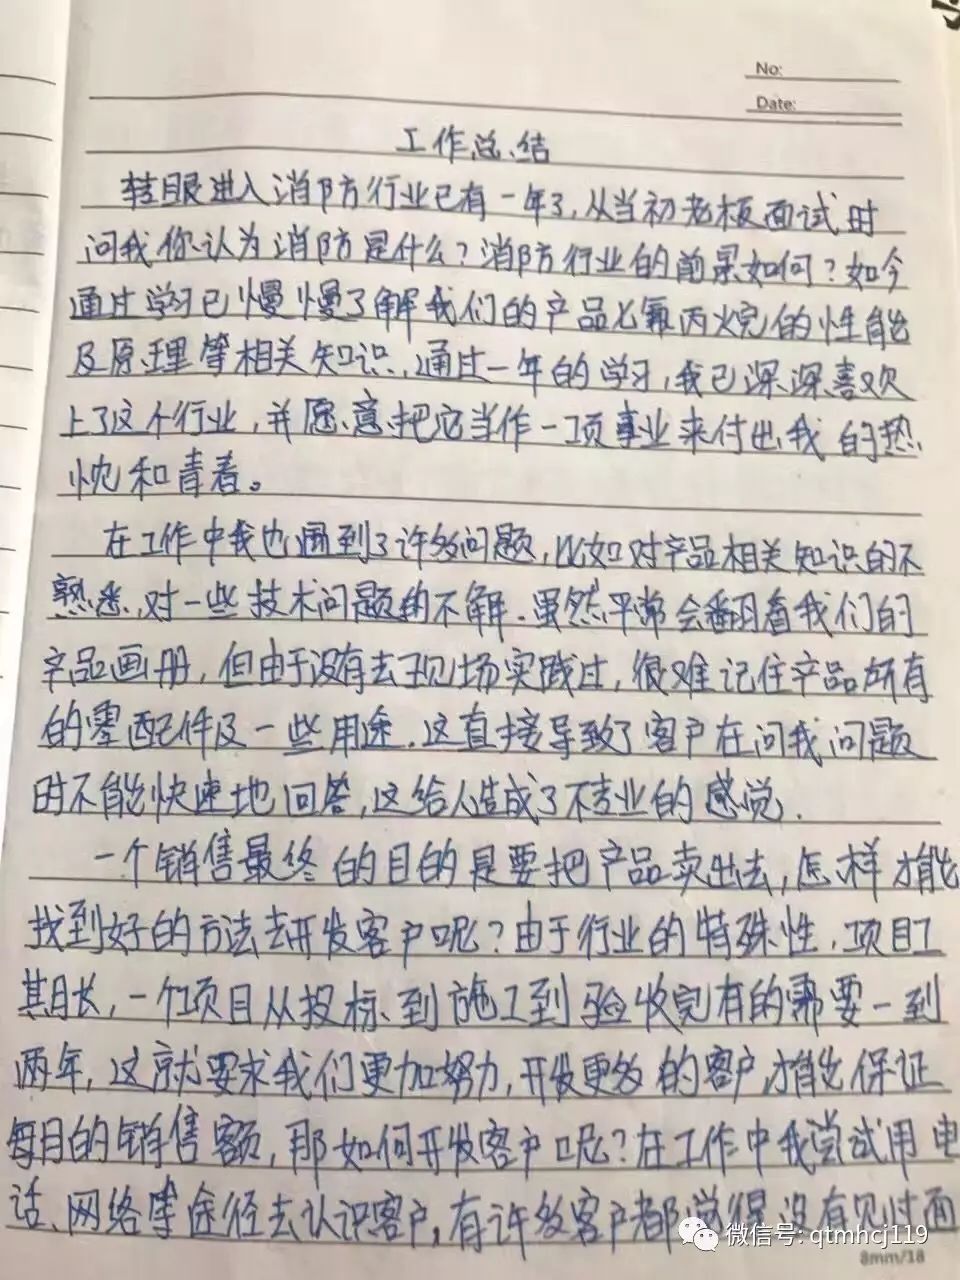 No:
Date:
工作总结
转眼进入消防行业已有一年了,从当初老板面试时
问我你认为消防是什么?消防行业的前景如何?如今
通过学习已慢慢了解我们的产品七氟丙烷的性能
及原理等相关知识,通过一年的学习,我已深深喜欢
上了这个行业,并愿意把它当作一项事业来付出我的热
忱和青春。
在工作中我也遇到了许多问题,比如对产品相关知识的不
熟悉,对一些技术问题的不解.虽然平常会翻看我们的
产品画册,但由于没有去现场实践过,很难记住产品所有
的零配件及一些用途.这直接导致了客户在问我问题
时不能快速地回答,这给人造成了不专业的感觉.
一个销售最终的目的是要把产品卖出去,怎样才能
找到好的方法去开发客户呢?由于行业的特殊性,项目工
期长,一个项目从投标到施工到验收完有的需要一到
两年,这就要求我们更加努力,开发更多的客户才能保证
每月的销售额,那如何开发客户呢?在工作中我尝试用电
话、网络等途径去认识客户,有许多客户都觉得没有见过面
微信号: qtmhcj119
8mm/18